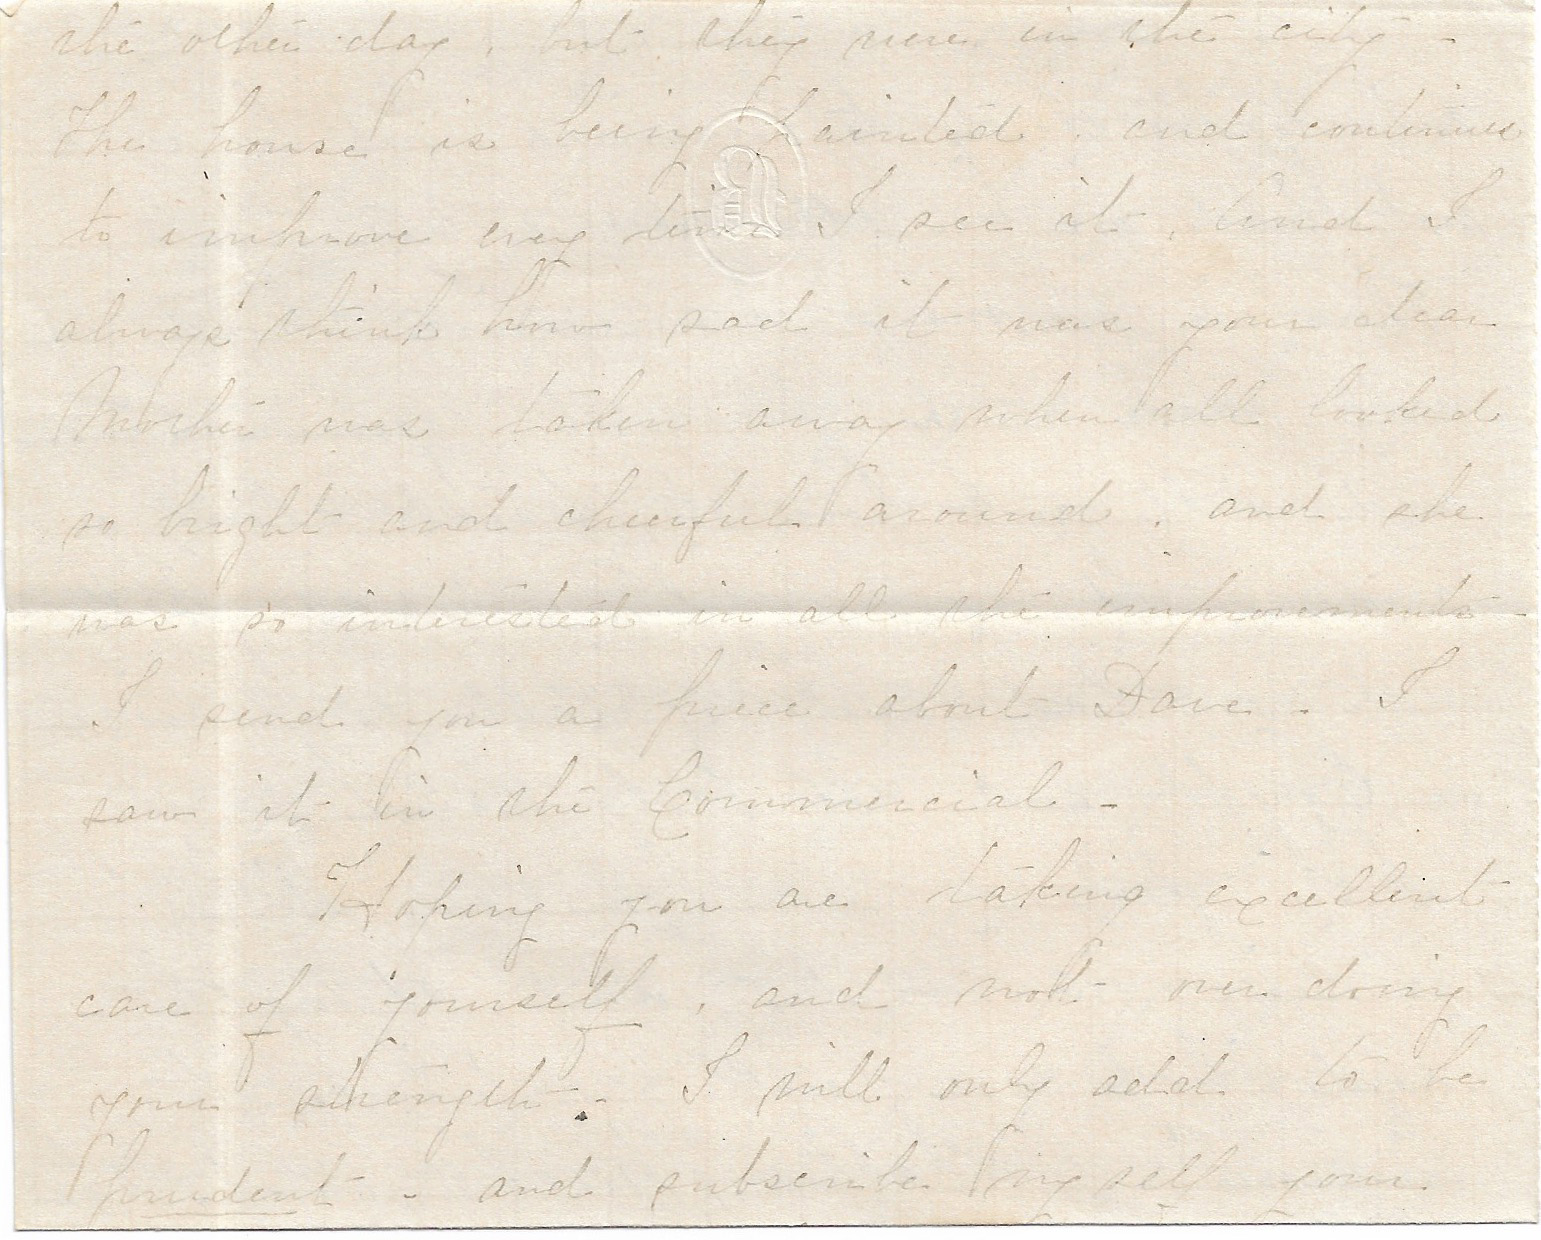 the other day, but they were in the city -
The house is being painted, and continues
to improve every time I see it, And I
always think how sad it was your dear
Mother was taken away when all looked
so bright and cheerful around, and she
was so interested in all the improvements -
I send you a piece about Dave - I
saw it in the Commercial -
Hoping you are taking excellent
care of yourself, and not over doing
your strength - I will only add to be
prudent - and subscribe myself your